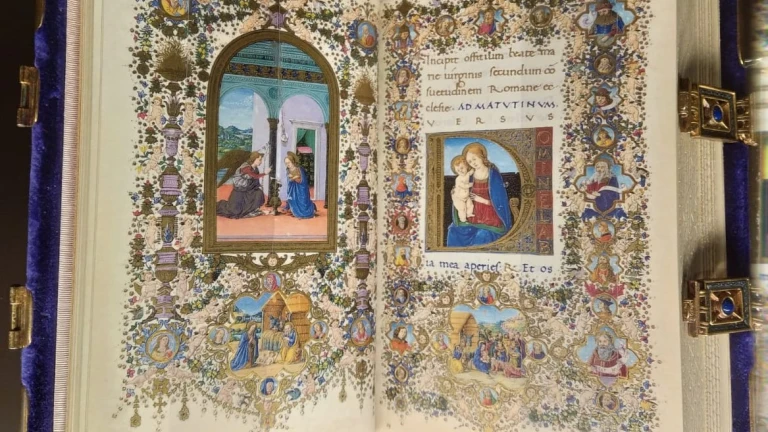 Incipit offitium beate ma
rie uirginis secundum cō
suetudinem Romane ec
clesie. AD MATUTINUM.
VERSUS
D OMINE LAB
ia mea aperies. R. Et os